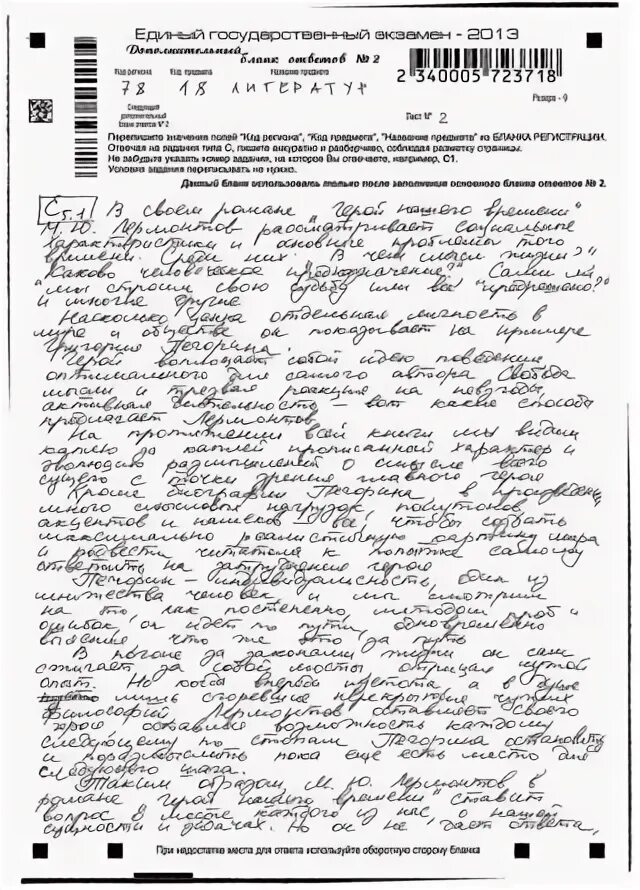 Единый государственный экзамен - 2013
Дополнительный
бланк ответов № 2
2 340005 723718
Код региона Код предмета Название предмета
78 18 ЛИТЕРАТУР
Резерв - 9
Следующий
дополнительный
бланк ответов № 2
Лист № 2
Перепишите значения полей "Код региона", "Код предмета", "Название предмета" из БЛАНКА РЕГИСТРАЦИИ.
Отвечая на задания типа С, пишите аккуратно и разборчиво, соблюдая разметку страницы.
Не забудьте указать номер задания, на которое Вы отвечаете, например, С1.
Условия задания переписывать не нужно.
Данный бланк использовать только после заполнения основного бланка ответов № 2.
С5.1 В своем романе "Герой нашего времени"
М.Ю. Лермонтов рассматривает социальные
характеристики и основные проблемы того
времени. Среди них: "В чем смысл жизни?"
"Каково человеческое предназначение?" "Сами ли
мы строим свою судьбу или все предрешено?"
и многие другие
Насколько ценна отдельная личность в
мире и обществе он показывает на примере
Григория Печорина.
Герой воплощает собой идею поведения
оптимального для самого автора. Свобода
мысли и трезвая реакция на невзгоды,
активная деятельность - вот какие способы
предлагает Лермонтов.
На протяжении всей книги мы видим
каплю за каплей прописанный характер и
эволюцию размышлений о смысле всего
сущего с точки зрения главного героя
Кроме биографии Печорина, в произведении
много смысловых нагрузок, полутонов,
акцентов и намеков чтобы создать
максимально реалистичную картину мира
и читателя к попытке самому
ответить на затруднение героя
Печорин - индивидуальность, один из
множества человек, и мы смотрим
на то, как постепенно, методом проб и
ошибок, он идет по пути, одновременно
выясняя что же это за путь
В погоне за законами жизни он сам
сжигает за собой мосты отрицая чужой
опыт. Но когда впереди пустота а в
лишь сгоревшие перекрытия чужих
философий Лермонтов оставляет своего
героя, оставляя возможность каждому
следующему по стопам Печорина остановиться
и поразмыслить пока еще есть место для
следующего шага.
Таким образом, М.Ю. Лермонтов в
романе "Герой нашего времени" ставит
вопрос о месте каждого из нас, о нашей
сущности и задачах. Но он не даст ответа,
При недостатке места для ответа используйте оборотную сторону бланка